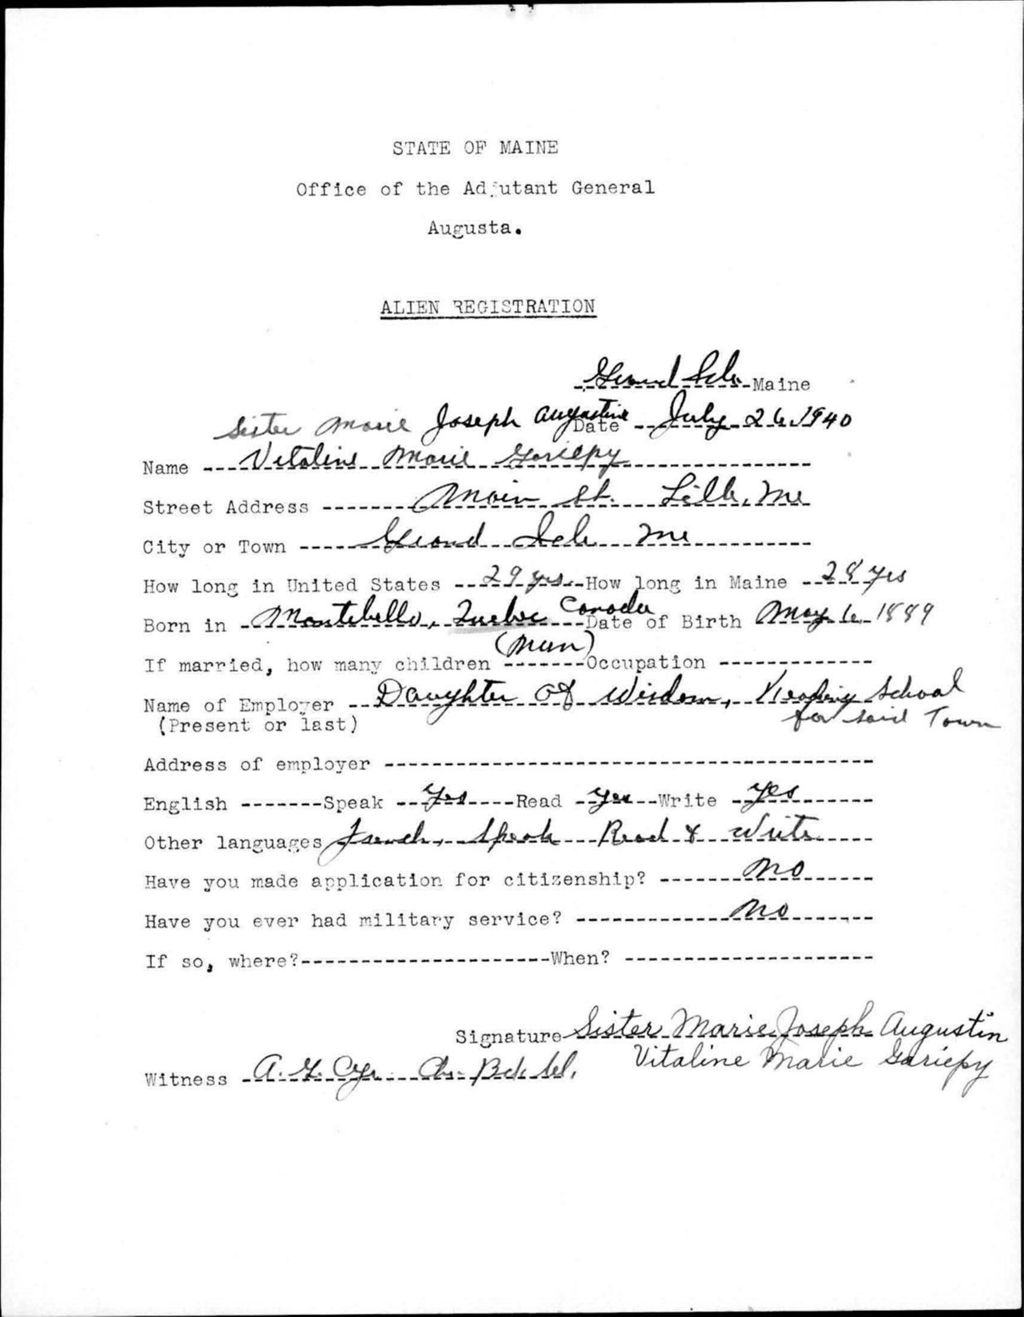 STATE OF MAINE
Office of the Adjutant General
Augusta.
ALIEN REGISTRATION
Grand Isle Maine
Sister Marie Joseph Augustine Date July 26, 1940
Name Vitaline Marie Gariepy
Street Address Main St. Lille, Me
City or Town Grand Isle Me
How long in United States 29 yrs. How long in Maine 28 yrs
Born in Montebello, Quebec Canada Date of Birth May 6 1889
(Nun)
If married, how many children Occupation
Name of Employer Daughter of Wisdom, Keeping School
(Present or last) for said Town
Address of employer
English Speak Yes Read Yes Write Yes
Other languages French, Speak Read & Write
Have you made application for citizenship? No
Have you ever had military service? No
If so, where? When?
Signature Sister Marie Joseph Augustin
Vitaline Marie Gariepy
Witness A. G. Cyr